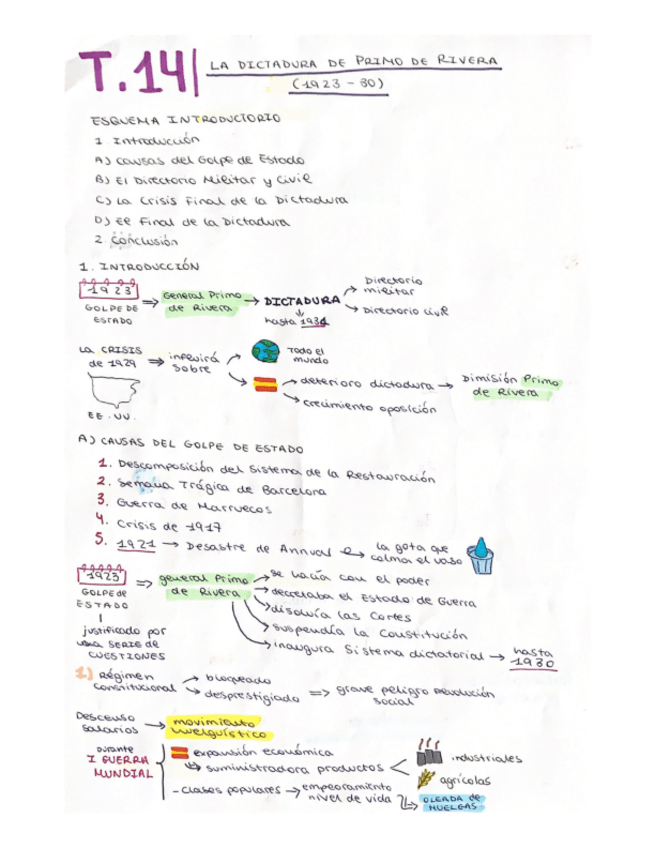 T.14|
LA DICTADURA DE PRIMO DE RIVERA
(1923-30)
ESQUEMA INTRODUCTORIO
1. Introducción
A) Causas del Golpe de Estado
B) El Directorio Militar y Civil
C) La Crisis Final de la Dictadura
D) El Final de la Dictadura
2. Conclusión
1. INTRODUCCIÓN
1923
GOLPE DE
ESTADO
⇒ General Primo
de Rivera
→ DICTADURA
hasta
→ Directorio
militar
→ directorio civil
LA CRISIS
de 1929
EE.UU.
⇒ influirá
sobre
Todo el
mundo
→ deterioro dictadura → Dimisión Primo
de Rivera
→ crecimiento oposición
A) CAUSAS DEL GOLPE DE ESTADO
1. Descomposición del Sistema de la Restauración
2. Semana Trágica de Barcelona
3. Guerra de Marruecos
4. Crisis de 1917
5. 1921 → Desastre de Annual → la gota que
colma el vaso
1923
GOLPE DE
ESTADO
justificado por
una SERIE de
CUESTIONES
⇒ general Primo
de Rivera
→ se hacía con el poder
→ decretaba el Estado de Guerra
→ disolvía las Cortes
→ suspendía la Constitución
→ inaugura Sistema dictatorial → hasta
1930
1) Régimen
Constitucional
→ bloqueado
→ desprestigiado ⇒ grave peligro revolución
social
Descenso
salarios
→ movimiento
huelguístico
Durante
I GUERRA
MUNDIAL
expansión económica
↳ suministradora productos
industriales
agrícolas
- clases populares → empeoramiento
nivel de vida
↳ OLEADA de
HUELGAS